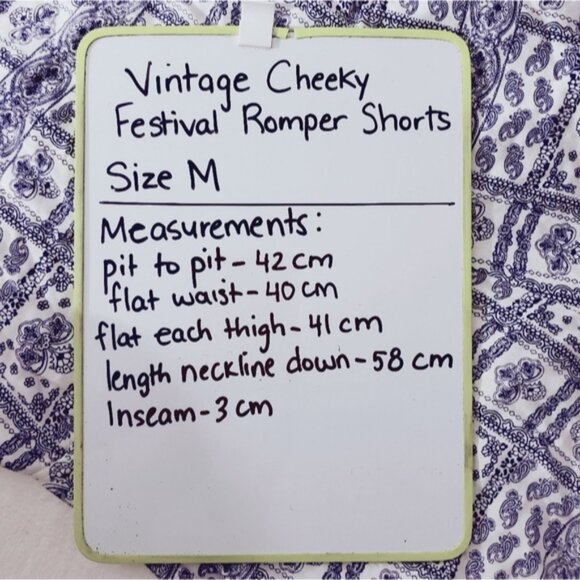 Vintage Cheeky
Festival Romper Shorts
Size M
Measurements:
pit to pit - 42 cm
flat waist - 40 cm
flat each thigh - 41 cm
length neckline down - 58 cm
Inseam - 3 cm